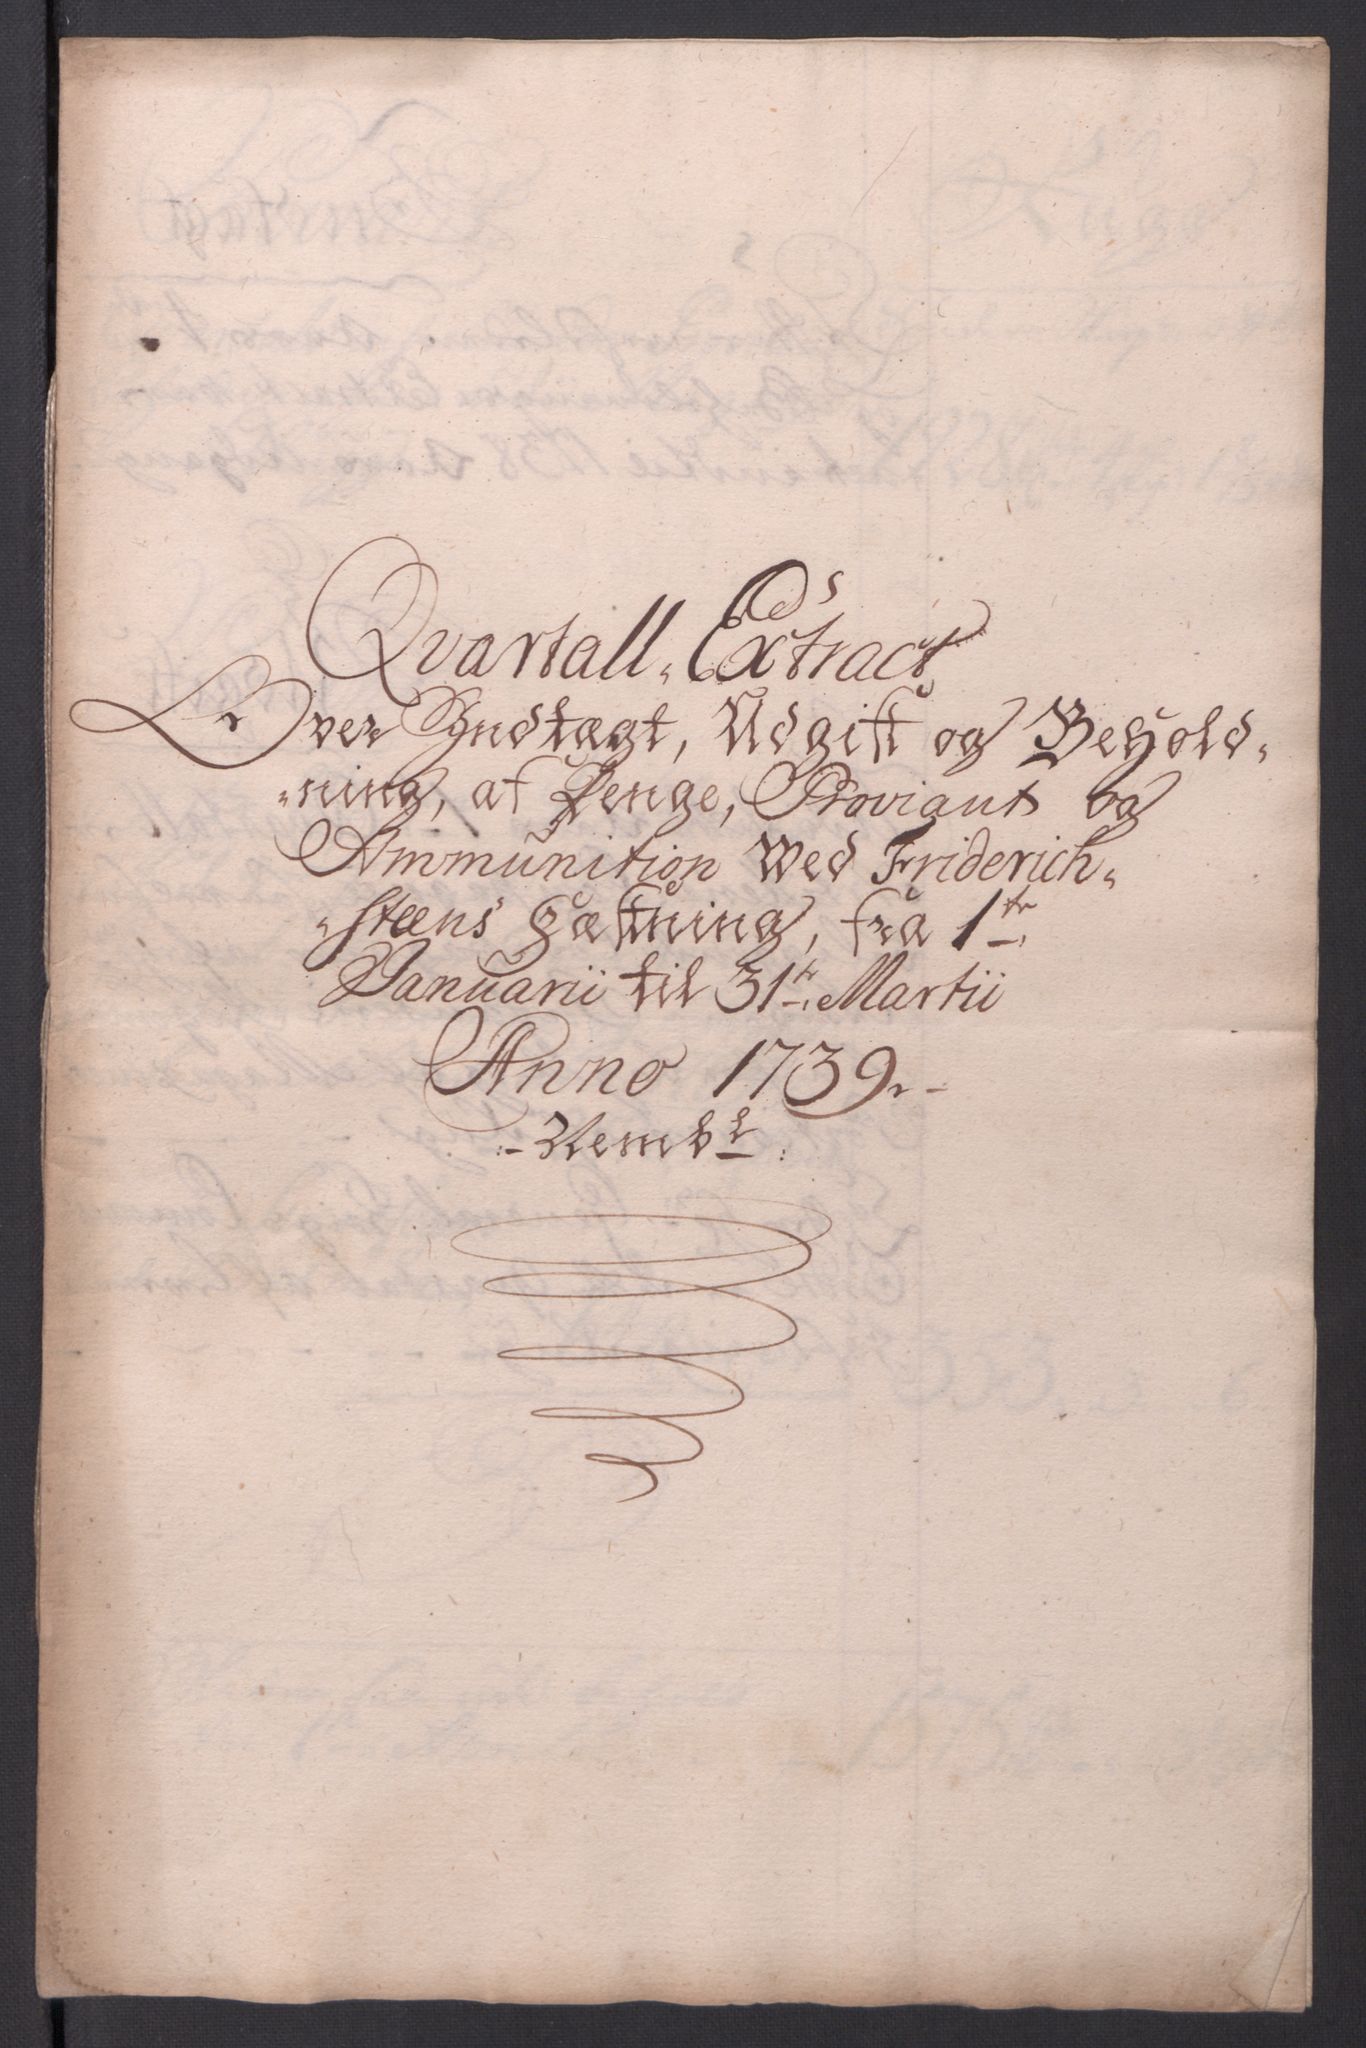 Qvartall, Extract
Over Indtægt, Udgift og Behold,
,ning, af Penge, Proviant og
Ammunition Wed Friderich,
,steens Fæstning, fra 1te
Januarii til 31te Martii
Anno 1739.